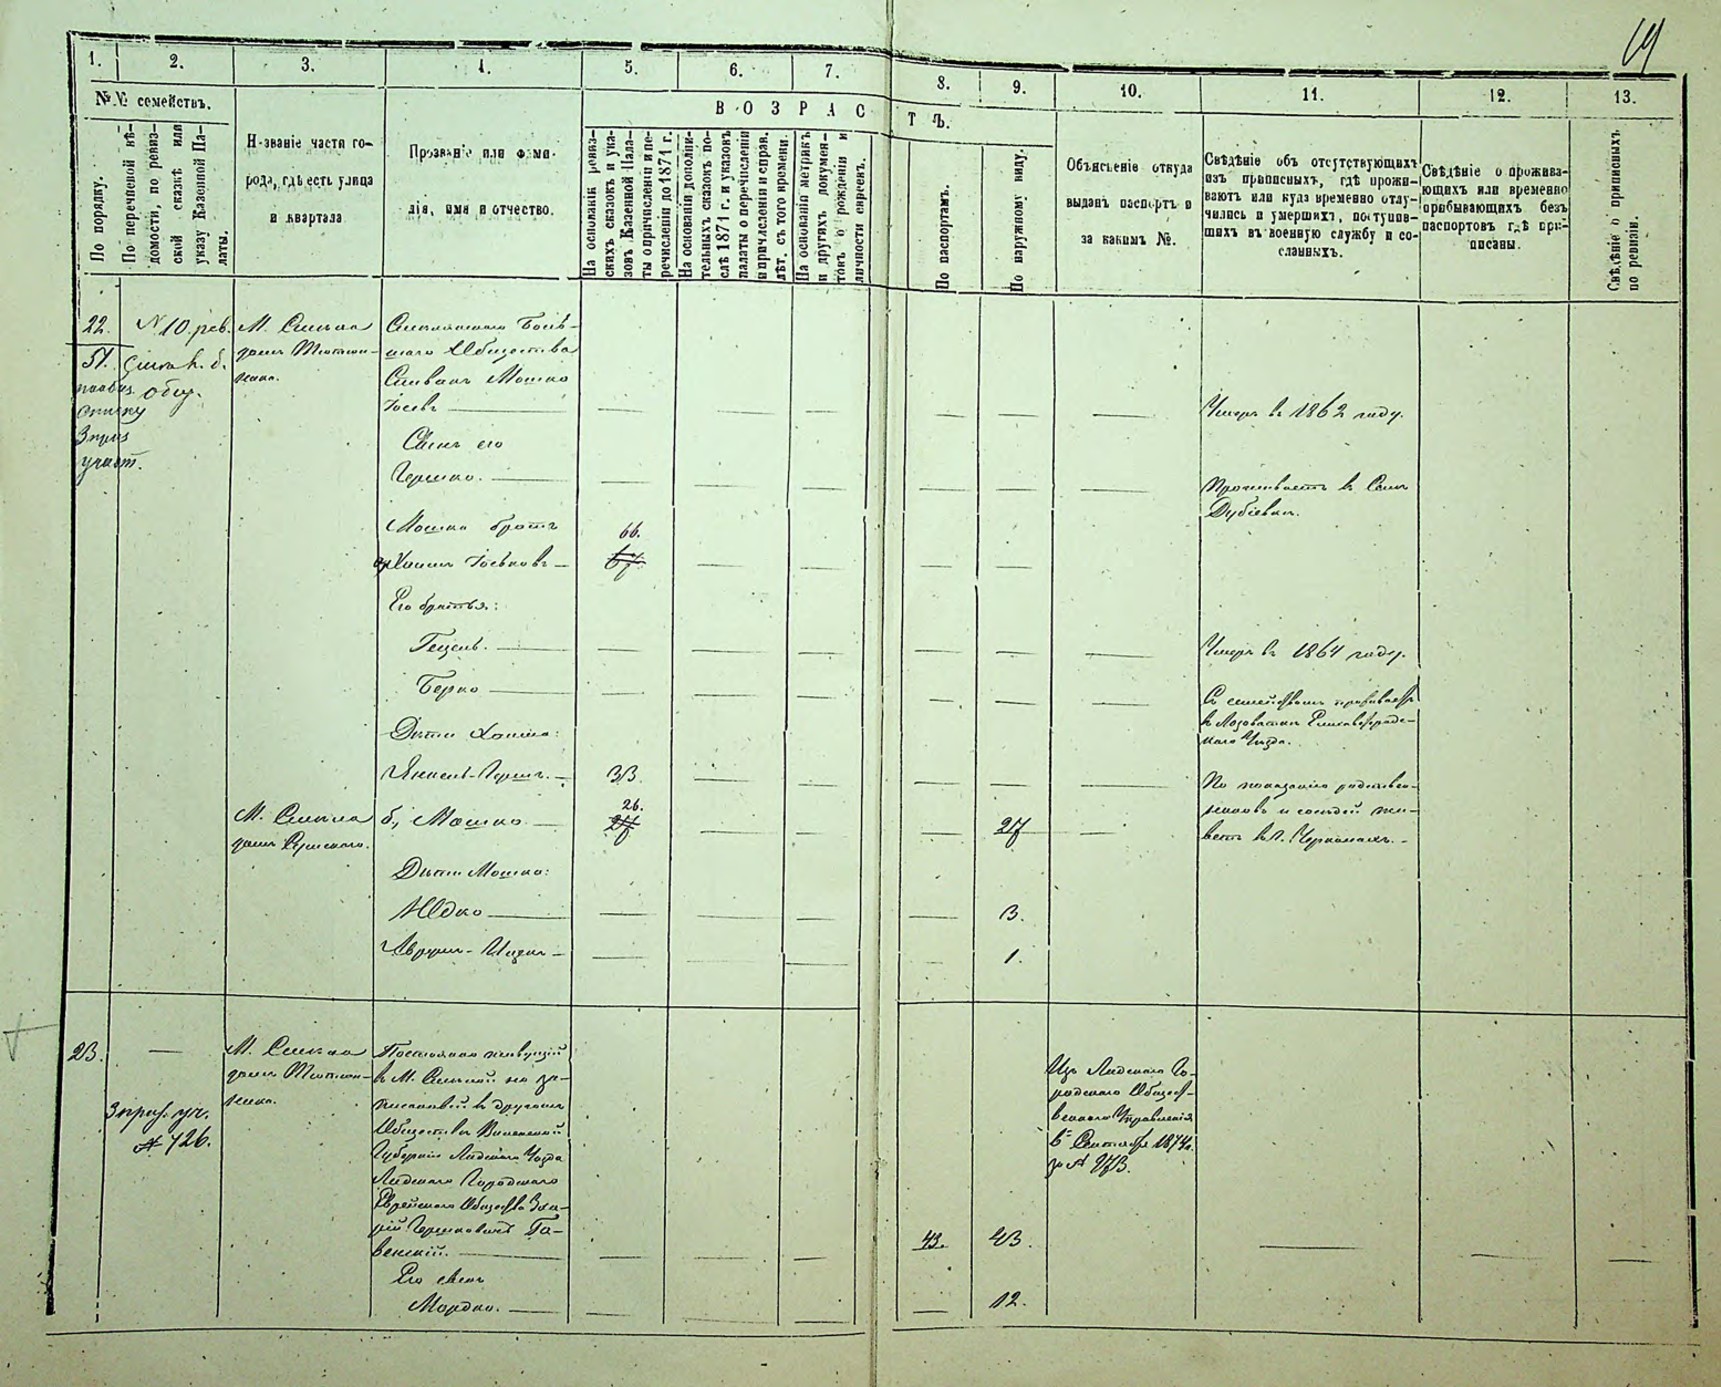 19
1. 2. 3. 4. 5. 6. 7. 8. 9. 10. 11. 12. 13.
№№ семействъ.
В О З Р А С Т Ъ.
По порядку.
По перечневой вѣ-
домости, по ревиз-
ской сказкѣ или
указу Казенной Па-
латы.
Названіе части го-
рода, гдѣ есть улица
и квартала
Прозваніе или фами-
лія, имя и отчество.
На основаніи ревиз-
скихъ сказокъ и ука-
зовъ Казенной Пала-
ты о причисленіи и пе-
речисленіи до 1871 г.
На основаніи дополни-
тельныхъ сказокъ по-
слѣ 1871 г. и указовъ
палаты о перечисленіи
и причисленіи и справ.
лѣт. съ того времени.
На основаніи метрикъ
и другихъ докумен-
товъ о рожденіи и
личности евреевъ.
По паспортамъ.
По наружному виду.
Объясненіе откуда
выданъ паспортъ и
за какимъ №.
Свѣдѣніе объ отсутствующихъ
изъ приписныхъ, гдѣ прожи-
ваютъ или куда временно отлу-
чились и умершихъ, поступив-
шихъ въ военную службу и со-
сланныхъ.
Свѣдѣніе о прожива-
ющихъ или временно
прибывающихъ безъ
паспортовъ гдѣ при-
писаны.
Свѣдѣніе о приписныхъ
по ревизіи.
22. № 10. рев. М. Смѣла
51.
общ.
3 приз
участ.
Общества
Мошко
Умеръ въ 1862 году.
Сынъ его
Гершко.
Проживаетъ въ
Мошки братъ 66.
Хаимъ Іоськовъ 67
Его братья:
Гецель. Умеръ въ 1864 году.
Берко Съ семействомъ
въ Елисаветград-
скаго Уѣзда.
Дѣти Хаима:
Янкель-Герш. 33 По показанію родствен-
никовъ и сосѣдей жи-
ветъ въ г. Черкасахъ.
М. Смѣла б., Мошко 26. 27 27
домъ
Дѣти Мошка:
Юдко 3.
Аврумъ-Ицко 1.
23. М. Смѣла Постоянно живущій
домъ въ М. Смѣлой но за-
писанный въ другомъ
3 приз. уч. Обществѣ Виленской
№ 726. Губерніи Лидскаго Уѣзда
Лидскаго Городскаго
Еврейскаго Общества Заха-
рій Гершковичъ Га-
венскій. 43. 43.
Изъ Лидскаго Го-
родскаго Обществ-
еннаго Управленія
6 Сентября 1874 г.
за № 273.
Его сынъ
Мордко. 12.